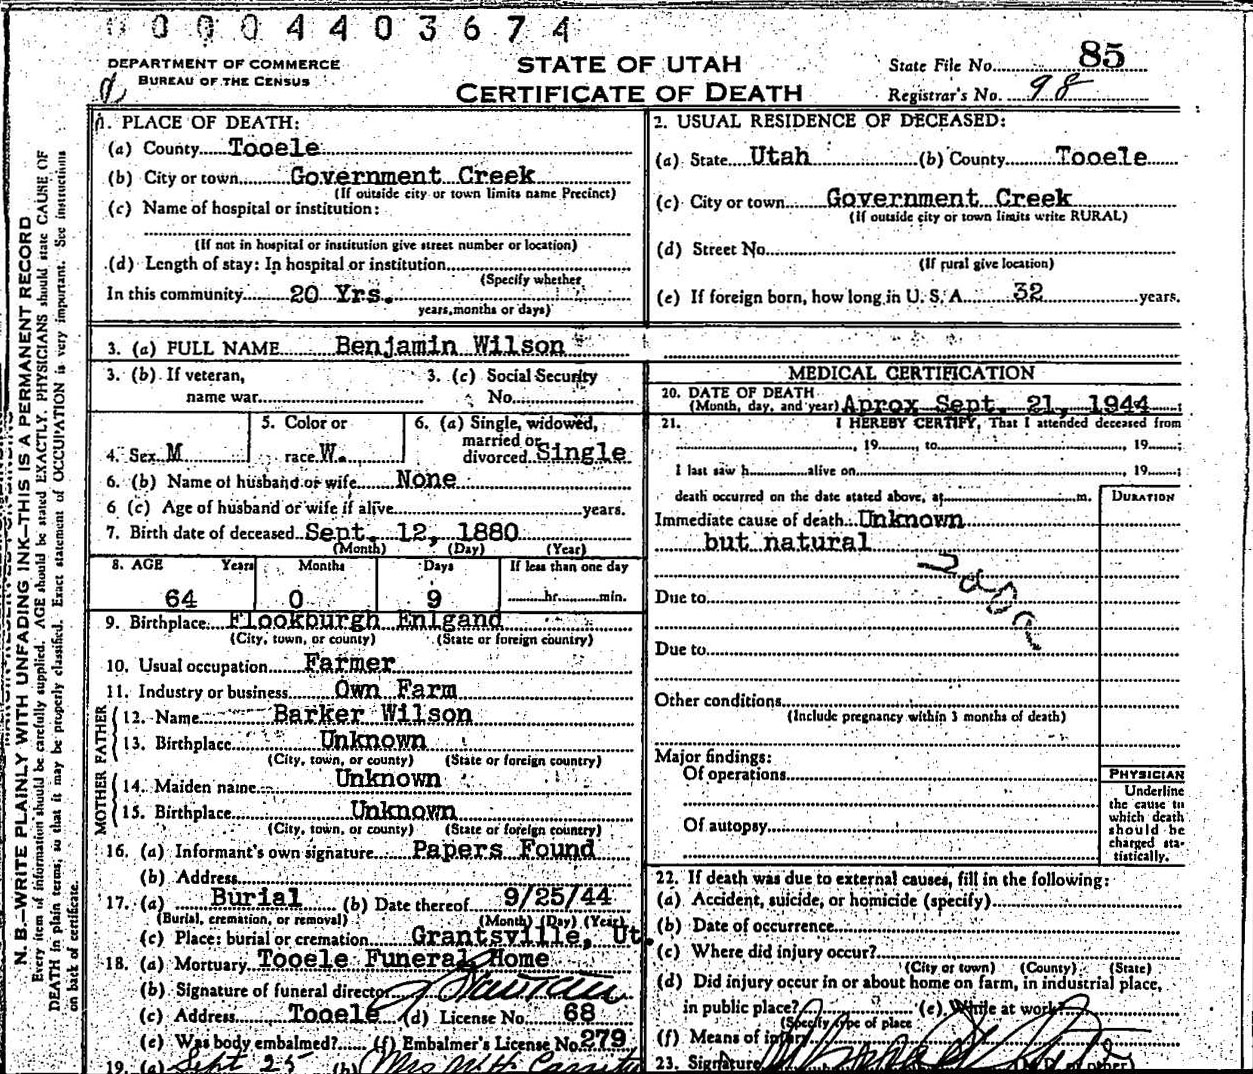 0 0 0 4 4 0 3 6 7 4
DEPARTMENT OF COMMERCE
BUREAU OF THE CENSUS
STATE OF UTAH
CERTIFICATE OF DEATH
State File No. 85
Registrar's No. 98
N. B.—WRITE PLAINLY WITH UNFADING INK—THIS IS A PERMANENT RECORD
Every item of information should be carefully supplied. AGE should be stated EXACTLY. PHYSICIANS should state CAUSE OF
DEATH in plain terms, so that it may be properly classified. Exact statement of OCCUPATION is very important. See instructions
on back of certificate.
1. PLACE OF DEATH:
(a) County Tooele
(b) City or town Government Creek
(If outside city or town limits name Precinct)
(c) Name of hospital or institution:
(If not in hospital or institution give street number or location)
(d) Length of stay: In hospital or institution
(Specify whether
In this community 20 Yrs.
years, months or days)
2. USUAL RESIDENCE OF DECEASED:
(a) State Utah (b) County Tooele
(c) City or town Government Creek
(If outside city or town limits write RURAL)
(d) Street No.
(If rural give location)
(e) If foreign born, how long in U. S. A. 32 years.
3. (a) FULL NAME Benjamin Wilson
3. (b) If veteran,
name war
3. (c) Social Security
No.
4. Sex M
5. Color or
race W.
6. (a) Single, widowed,
married or
divorced Single
6. (b) Name of husband or wife None
6 (c) Age of husband or wife if alive years.
7. Birth date of deceased Sept. 12, 1880
(Month) (Day) (Year)
8. AGE Years Months Days If less than one day
64 0 9 hr. min.
9. Birthplace Flookburgh Enlgand
(City, town, or county) (State or foreign country)
10. Usual occupation Farmer
11. Industry or business Own Farm
FATHER
12. Name Barker Wilson
13. Birthplace Unknown
(City, town, or county) (State or foreign country)
MOTHER
14. Maiden name Unknown
15. Birthplace Unknown
(City, town, or county) (State or foreign country)
16. (a) Informant's own signature Papers Found
(b) Address
17. (a) Burial (b) Date thereof 9/25/44
(Burial, cremation, or removal) (Month) (Day) (Year)
(c) Place: burial or cremation Grantsville, Ut.
18. (a) Mortuary Tooele Funeral Home
(b) Signature of funeral director
(c) Address Tooele (d) License No. 68
(e) Was body embalmed? (f) Embalmer's License No. 279
19. (a) Sept 25 (b) Mrs
MEDICAL CERTIFICATION
20. DATE OF DEATH
(Month, day, and year) Aprox Sept. 21, 1944
21. I HEREBY CERTIFY, That I attended deceased from
, 19 to , 19 ;
I last saw h alive on , 19 ;
death occurred on the date stated above, at m.
DURATION
Immediate cause of death: Unknown
but natural
Due to
Due to
Other conditions
(Include pregnancy within 3 months of death)
Major findings:
Of operations
Of autopsy
PHYSICIAN
Underline
the cause to
which death
should be
charged sta-
tistically.
22. If death was due to external causes, fill in the following:
(a) Accident, suicide, or homicide (specify)
(b) Date of occurrence
(c) Where did injury occur?
(City or town) (County) (State)
(d) Did injury occur in or about home on farm, in industrial place,
in public place? (e) While at work?
(Specify type of place
(f) Means of injury
23. Signature (M.D. or other)